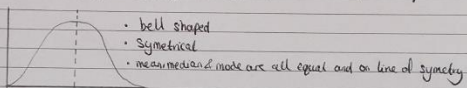 • bell shaped
• Symetrical
• mean, median & mode are all equal and on line of symetry